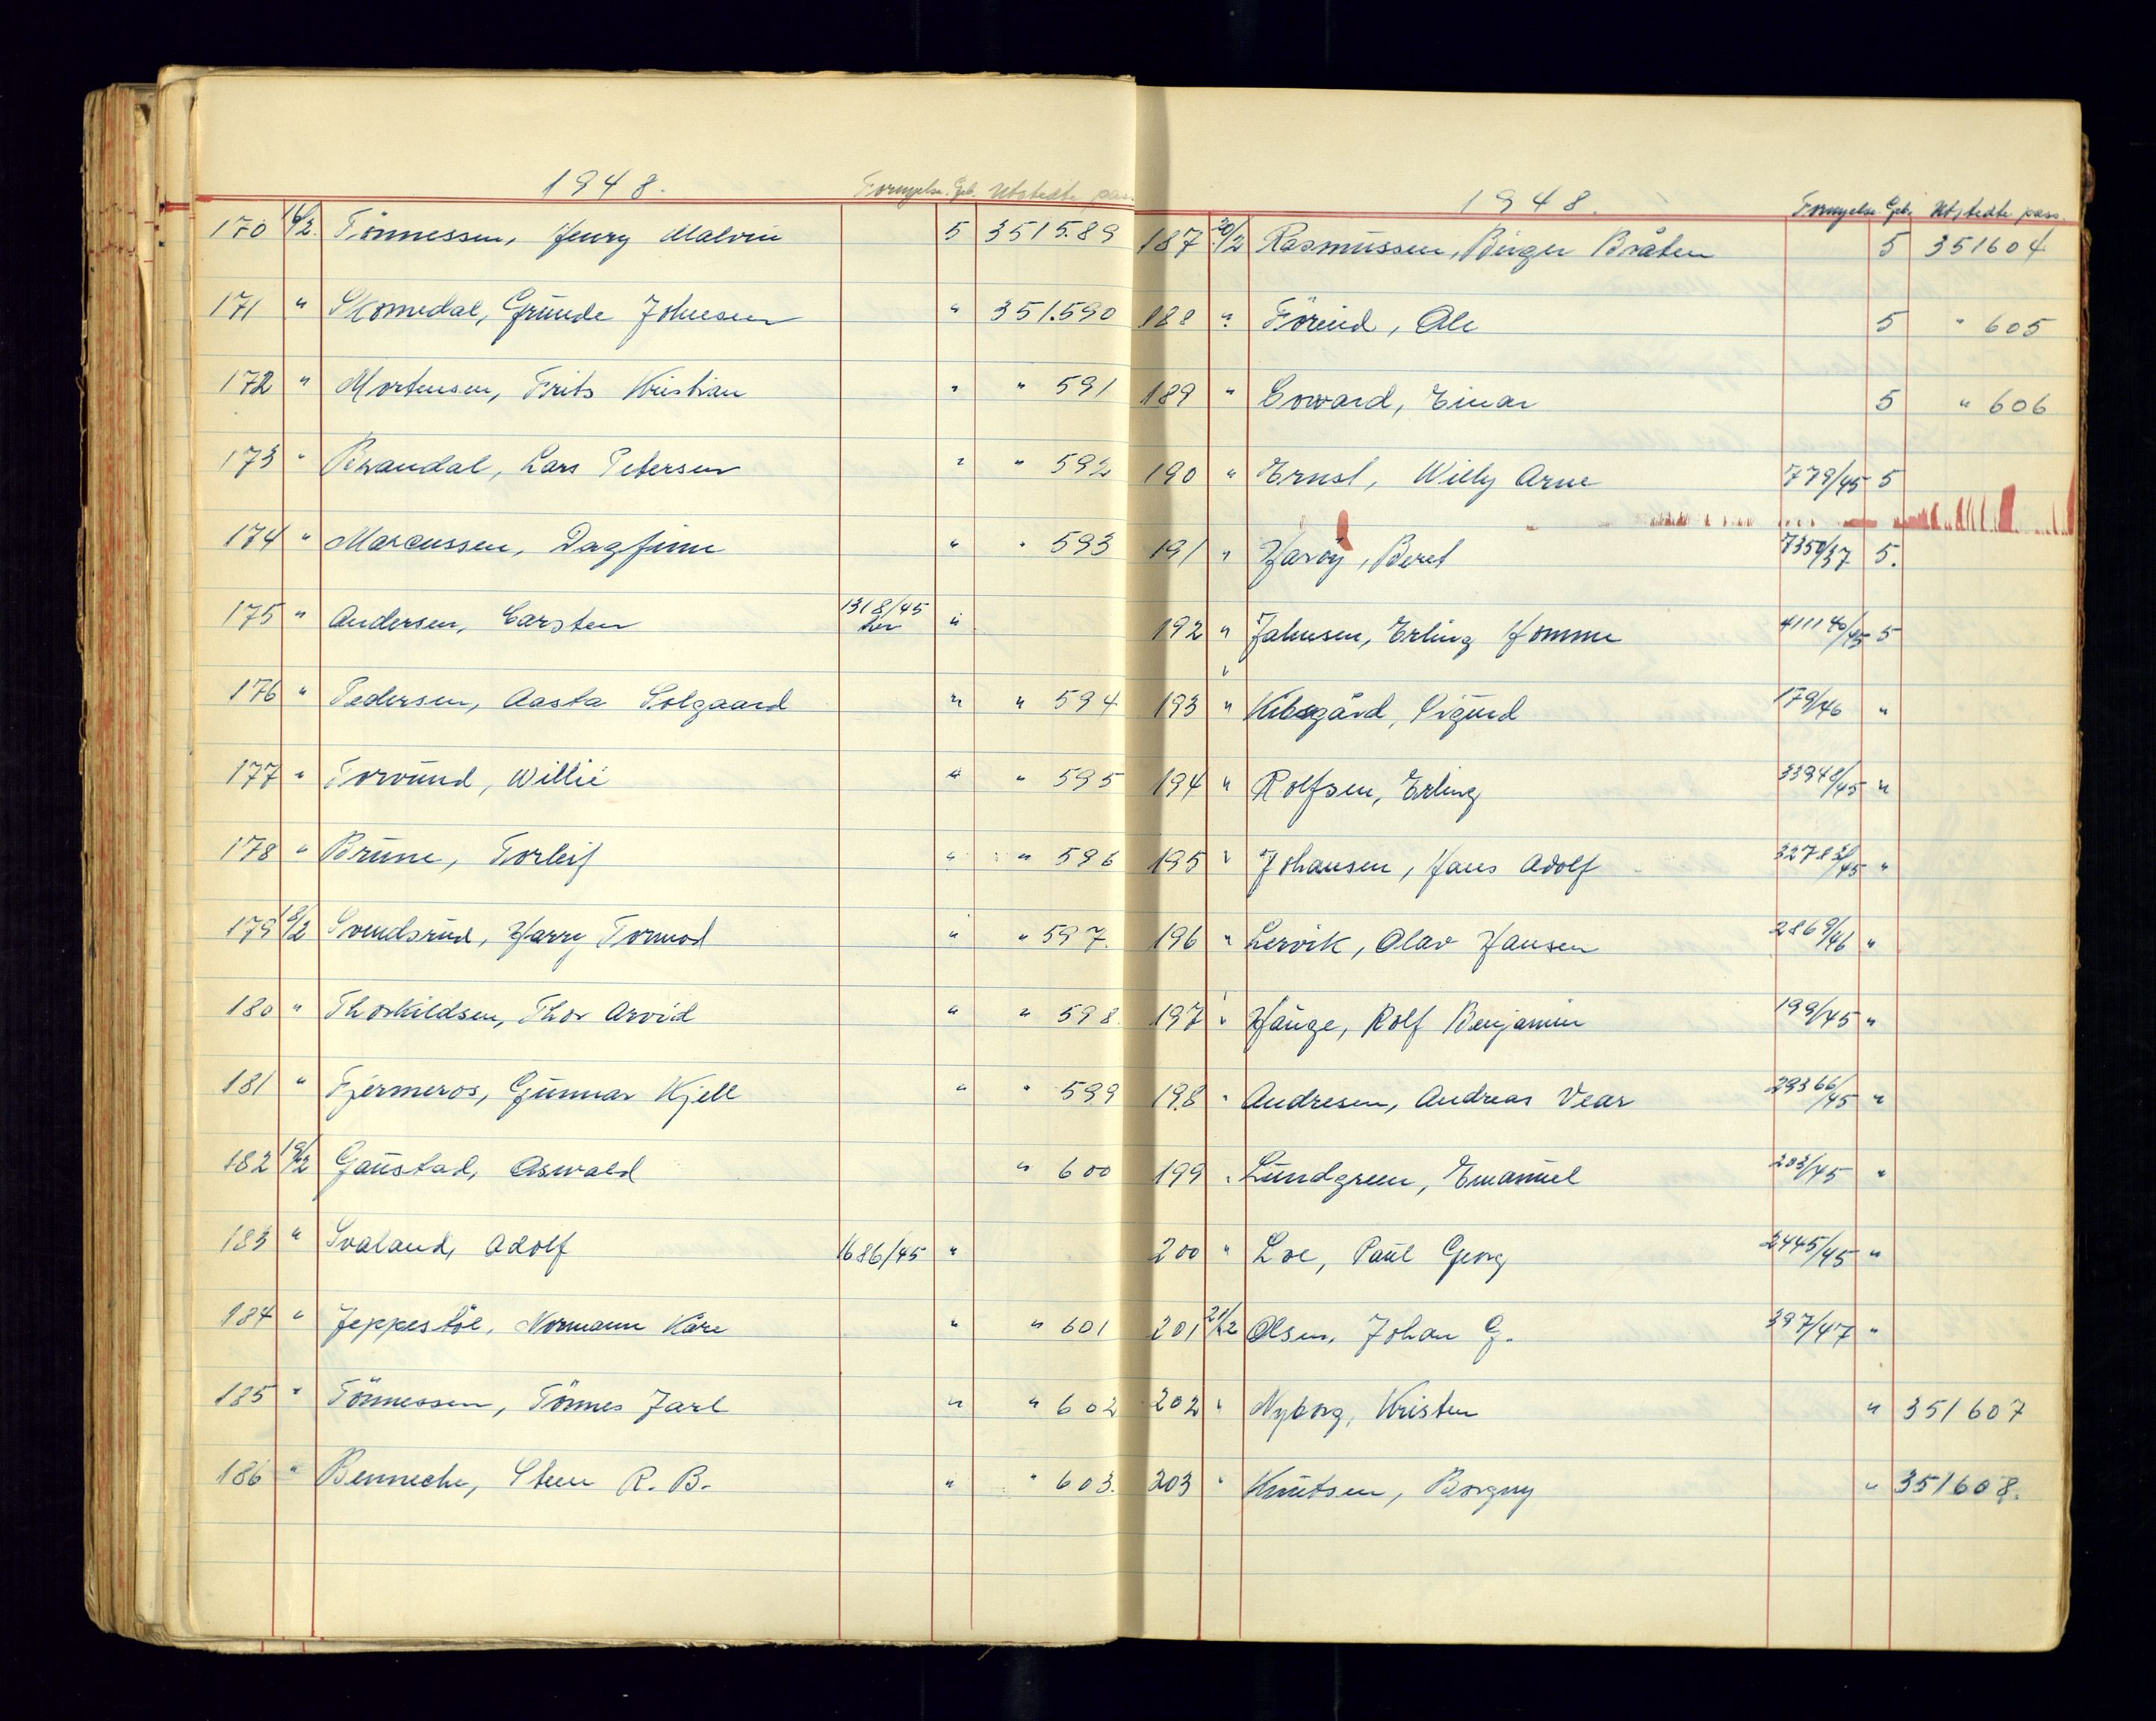 1948.
Fornyelse. Geb. Utstedte pass.
170 16/2. Tönnessen, Henry Malvin 5 351589
171 " Skomedal, Grunde Johnsen " 351.590
172 " Mortensen, Frits Kristian " " 591
173 " Lars Petersen " " 592
174 " Marcussen, Dagfinn " " 593
175 " Andersen, Carsten 1318/45 "
176 " Pedersen, Aasta Solgaard " " 594
177 " Torvund, Willie " " 595
178 " Brune, Torleif " " 596
179 18/2 Svendsrud, Harry Tormod " " 597.
180 " Thorkildsen, Thor Arvid " " 598.
181 " Fjermeros, Gunnar Kjell " " 599
182 19/2 Gaustad, Oswald " 600
183 " Svaland, Adolf 1686/45 "
184 " Jeppestöl, Normann Kåre " " 601
185 " Tönnessen, Tönnes Jarl " " 602
186 " Benneche, Steen R. B. " " 603.
1948.
Fornyelse Geb. Utstedte pass.
187 20/2 Rasmussen, Birger Bråten 5 351604
188 " Ole 5 " 605
189 " Coward, Einar 5 " 606
190 " Ernst, Willy Arne 779/45 5
191 " Haröy, Beret 7350/37 5.
192 " Jahnsen, Erling Homme 41140/45 5
193 " Kibsgård, Sigurd 179/46 "
194 " Rolfsen, Erling 33948/45 "
195 " Johansen, Hans Adolf "
196 " Lervik, Olav Hansen 2869/46 "
197 " Hauge, Rolf Benjamin 199/45 "
198 " Andresen, Andreas Vear 29366/45 "
199 " Lundgreen, Emanuel 203/45 "
200 " Loe, Paul Georg 2445/45 "
201 21/2 Olsen, Johan G. 397/47 "
202 " Nyborg, Kristen " 351607
203 " Knutsen, Borgny " 351608.